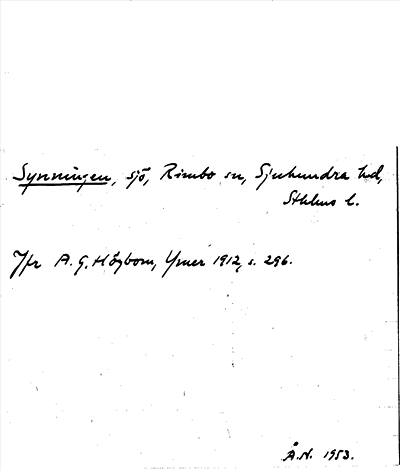 Synningen, sjö, Rimbo sn, Sjuhundra hd,
Sthlms l.
Jfr A. G. Högbom, Ymer 1912, s. 296.
Å.N. 1953.